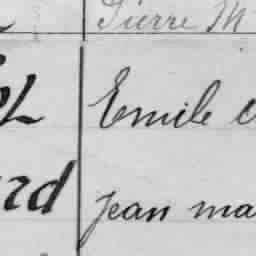 Pierre M
Emile
rd Jean ma